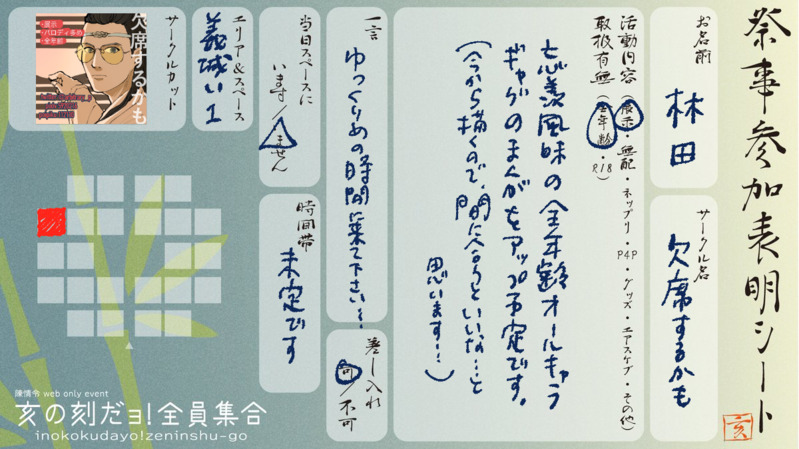 祭事参加表明シート
亥
お名前
林田
サークル名
欠席するかも
活動内容(展示・無配・ネップリ・P4P・グッズ・エアスケブ・その他)
取扱有無(全年齢・R18)
忘羨風味の全年齢オールキャラ
ギャグのまんがをアップ予定です。
(今から描くので、間に合うといいな…と
思います…)
一言
ゆっくりめの時間に来て下さい…
差し入れ
可/不可
当日スペースに
います/いません
時間帯
未定です
エリア&スペース
義城い1
サークルカット
欠席するかも
・展示
・パロディ多め
・全年齢
陳情令 web only event
亥の刻だョ!全員集合
inokokudayo!zeninshu-go